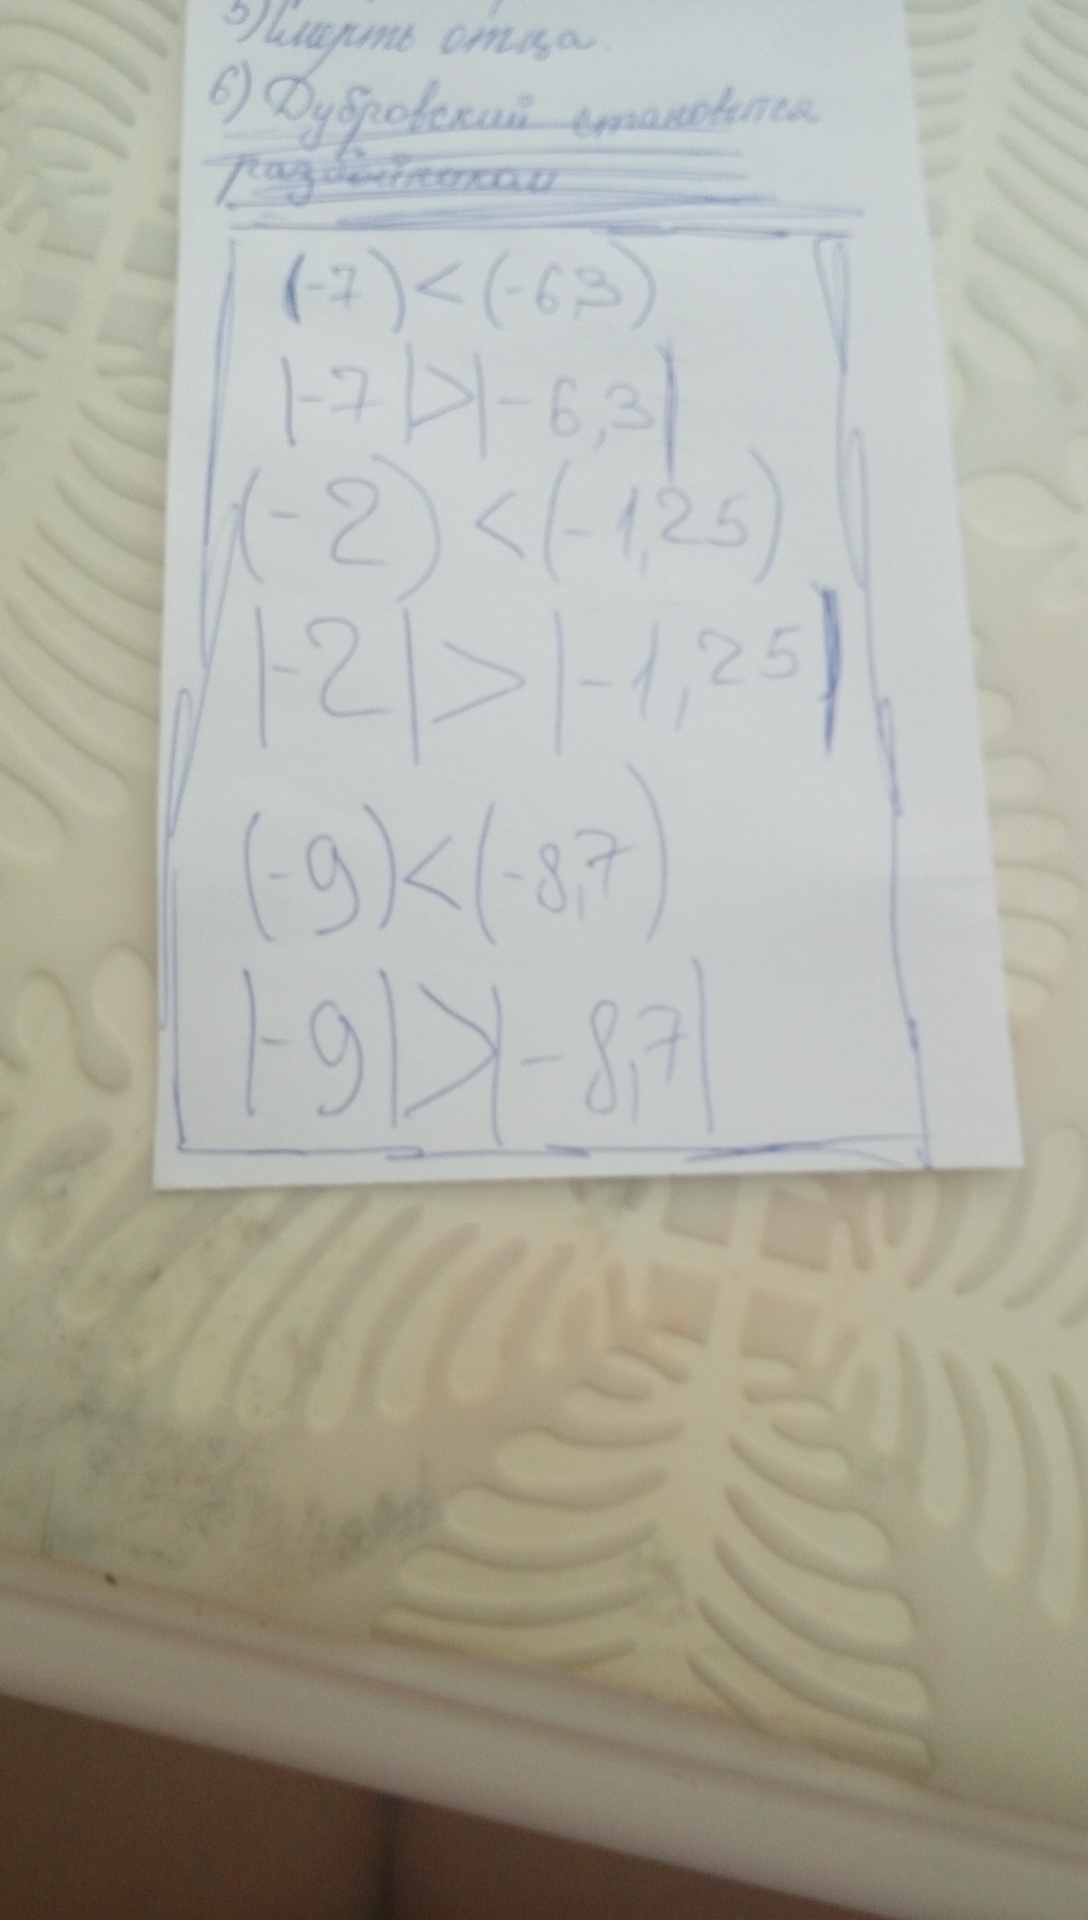 5) Смерть отца
6) Дубровский становится
разбойником
(-7) < (-6,3)
|-7| > |-6,3|
(-2) < (-1,25)
|-2| > |-1,25|
(-9) < (-8,7)
|-9| > |-8,7|